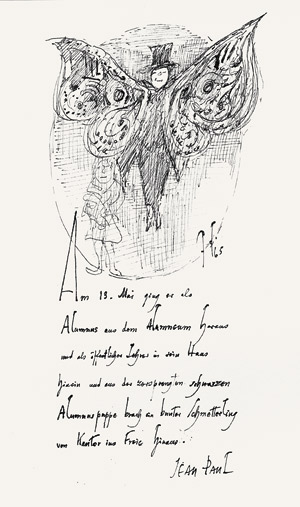 65
Am 13. Mai ging er als
Alumnus aus dem Alumneum heraus
und als öffentlicher Lehrer in sein Haus
hinein und aus der zersprengten schwarzen
Alumnuspuppe brach ein bunter Schmetterling
von Kantor ins Freie hinaus.
JEAN PAUL